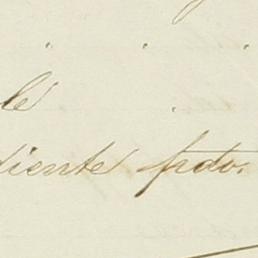 le
diente frdo.